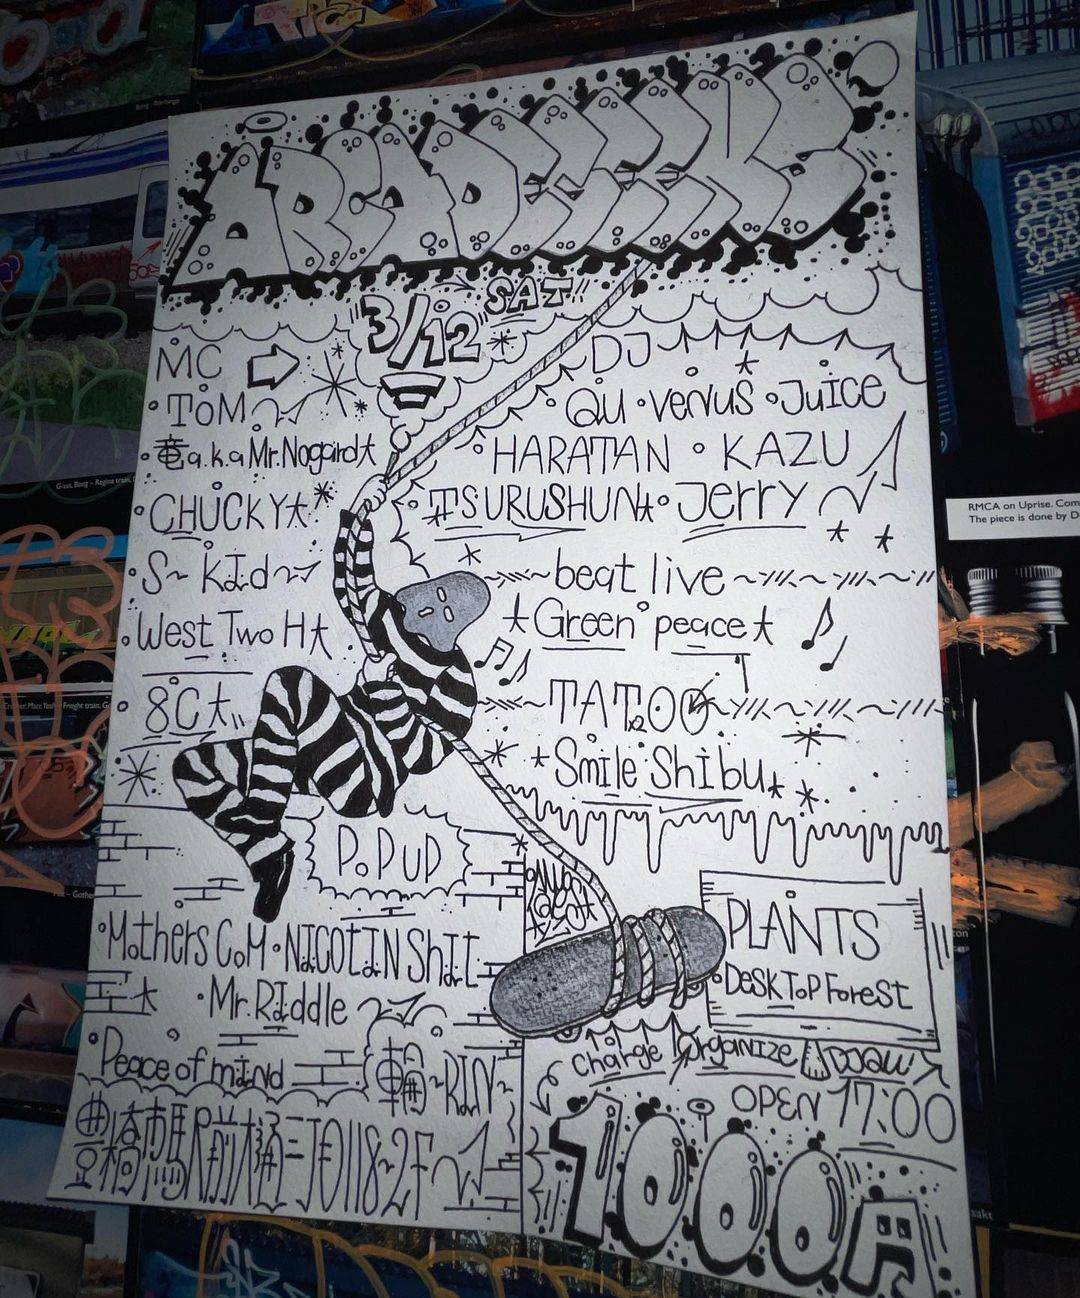 ARCADE SEEKS
3/12 SAT
MC
DJ
・TOM
・QU ・VENUS ・JUICE
・竜 a.k.a Mr.Nogard
・HARATAN ・KAZU
・CHUCKY
・TSURUSHUN ・JERRY
・S~KId
beat live
・West Two H
Green peace
・8℃
TATOO
Smile Shibu
POPUP
PLANTS
・Mothers CoM ・NICOTIN ShIt
・DESKTOP Forest
・Mr.RIddle
・Peace of mInd
輪~RIN~
charge
Organize
OPEN 17:00
豊橋市駅前大通三丁目118~2F
1000A
RMCA on Uprise. Com
The piece is done by D